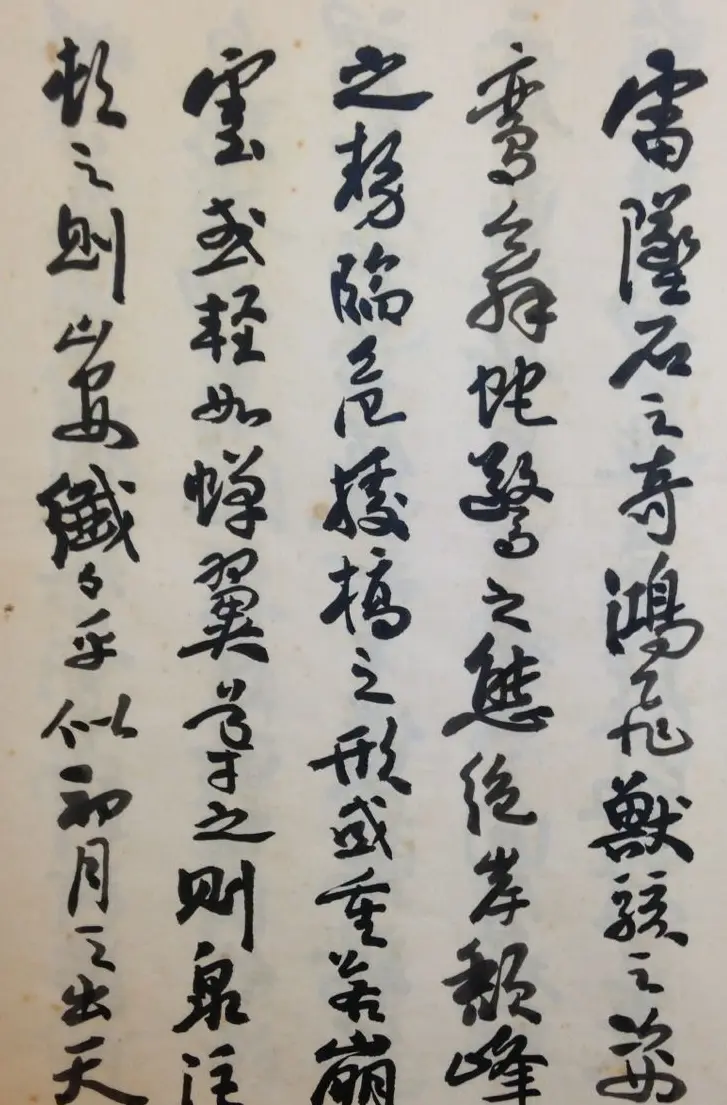 雷墜石之奇鴻飛獸駭之姿
鸞舞蛇驚之態絕岸頹峰
之勢臨危據槁之形或重若崩
雲或輕如蟬翼導之則泉注
頓之則山安纖纖乎似初月之出天